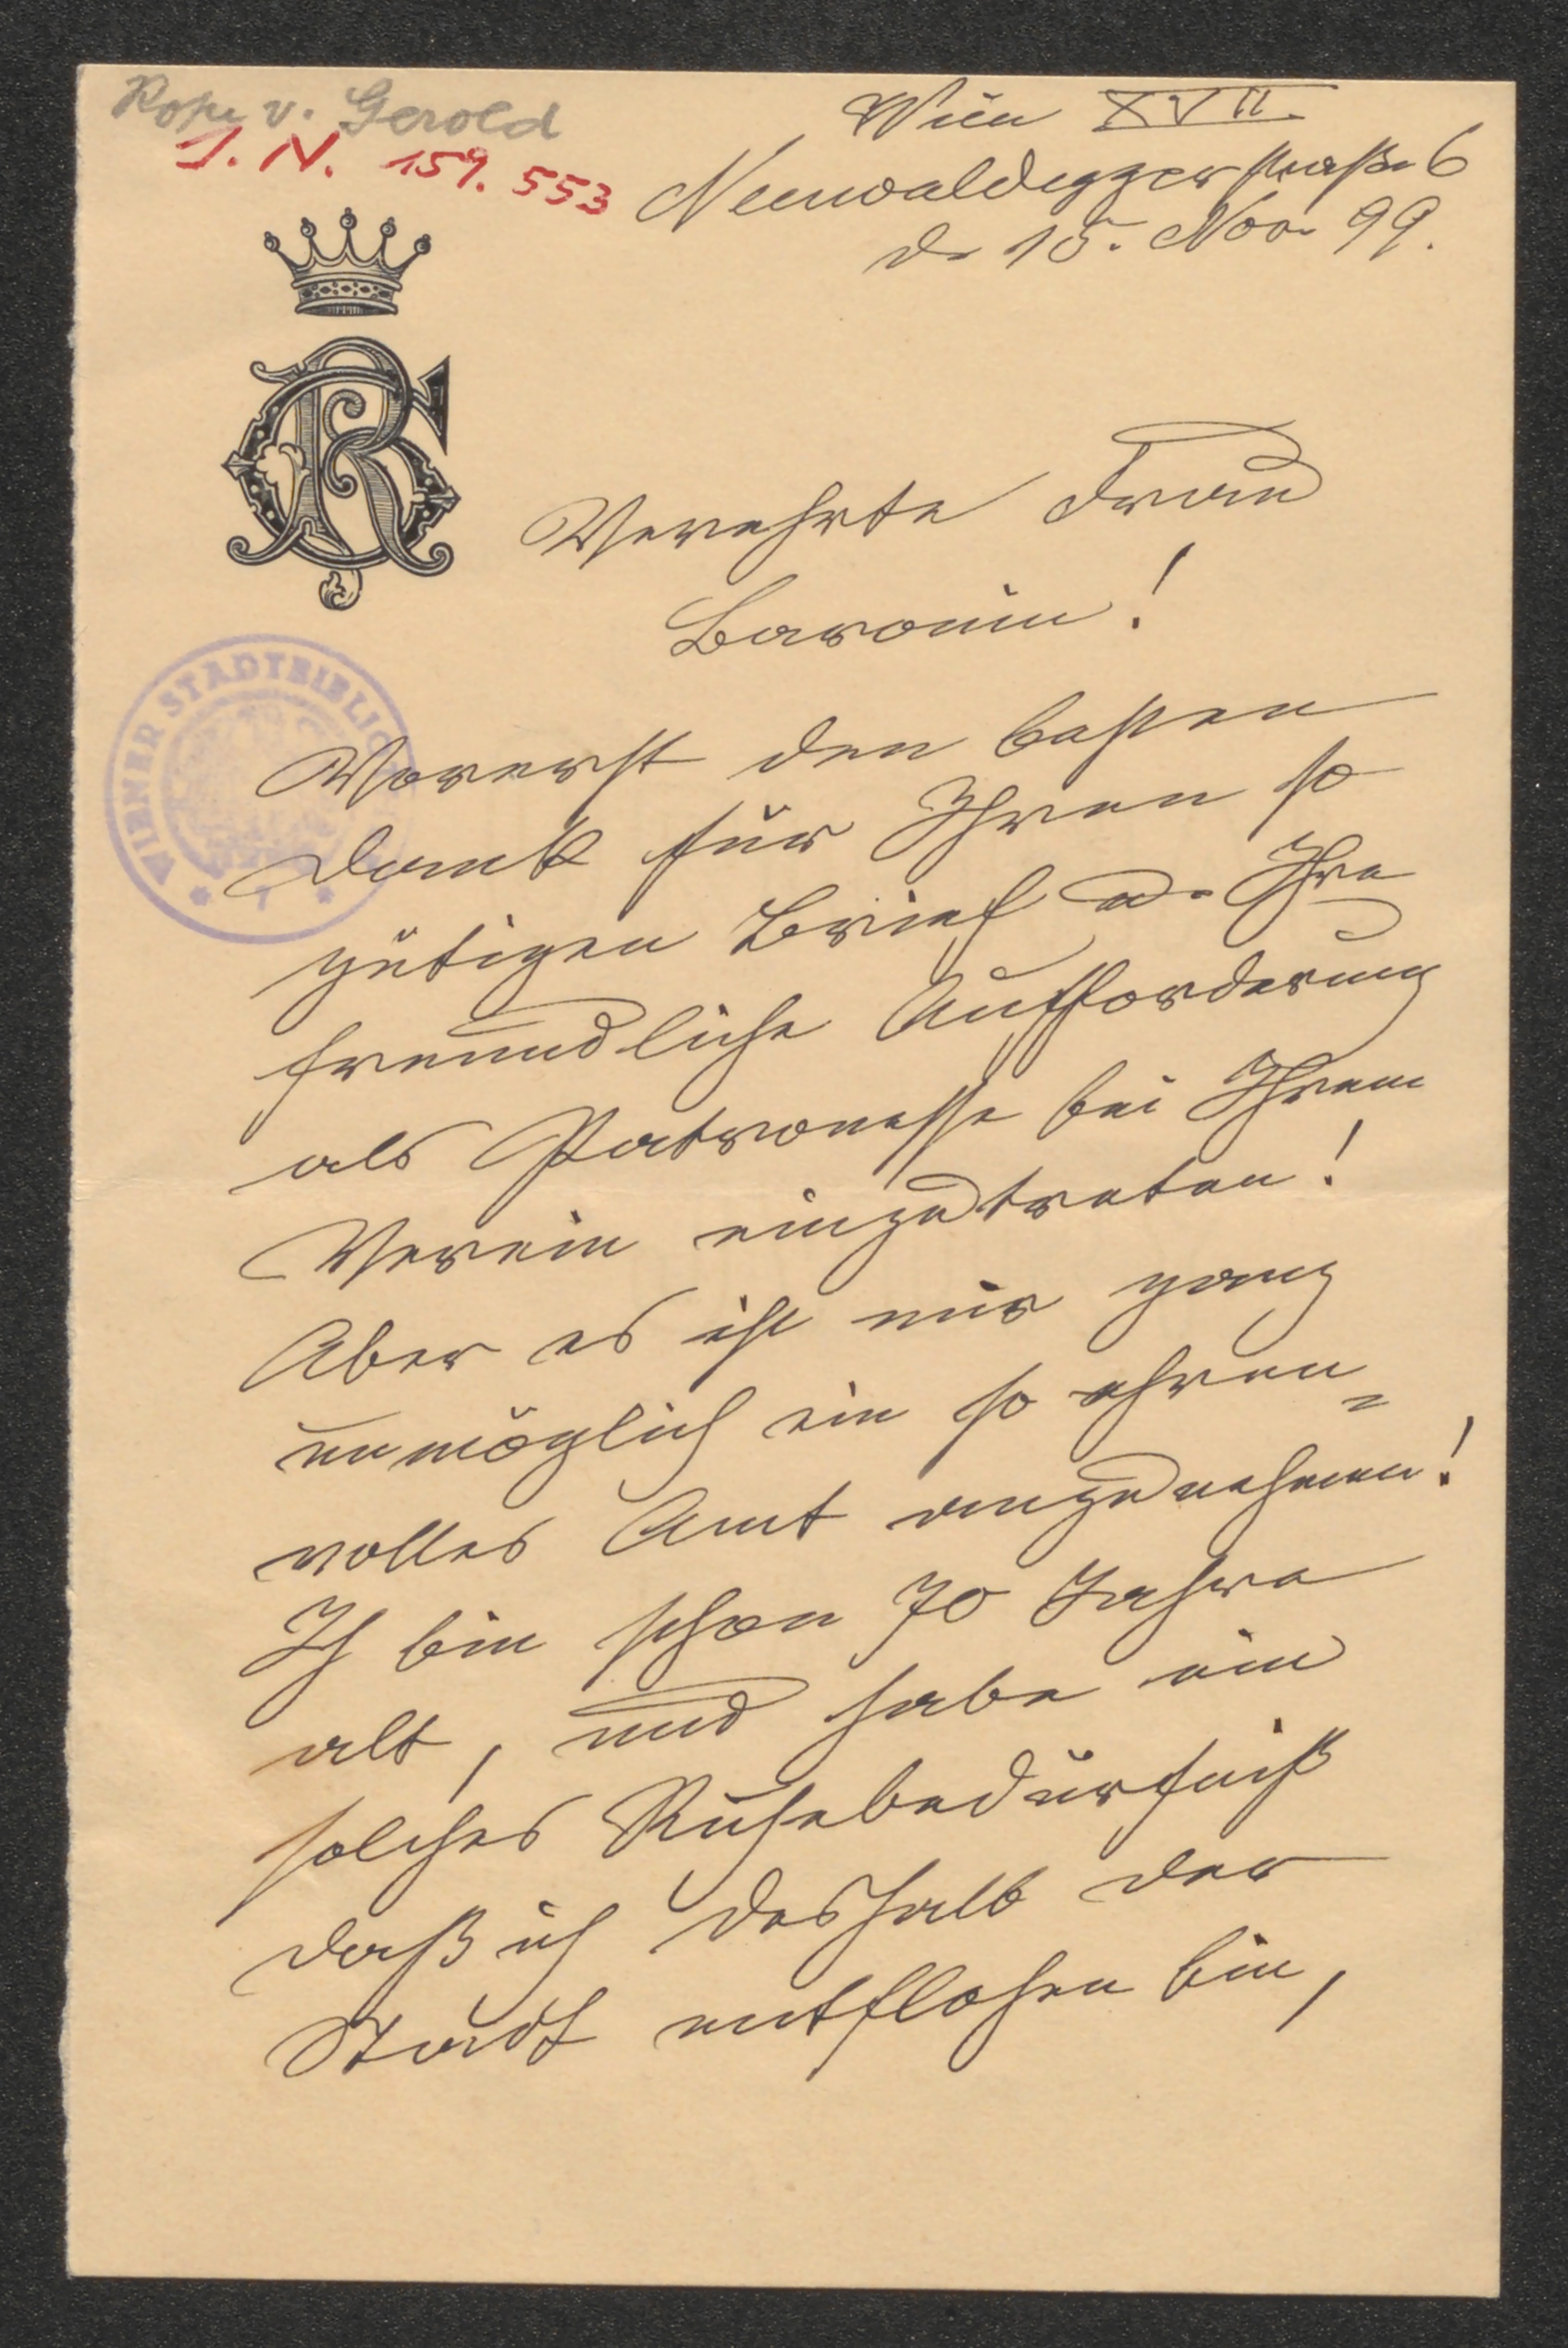 Rosa v. Gerold
I. N. 159.553
Wien XVII.
Neuwaldeggerstraße 6
d. 15. Nov. 99.
RG
WIENER STADTBIBLIO
Verehrte Frau
Baronin!
Vorerst den besten
Dank für Ihren so
gütigen Brief u. Ihre
freundliche Aufforderung
als Patronesse bei Ihrem
Verein einzutreten!
Aber es ist mir ganz
unmöglich ein so ehren=
volles Amt anzunehmen!
Ich bin schon 70 Jahre
alt, und habe ein
solches Ruhebedürfniß
daß ich deshalb der
Stadt entflohen bin,